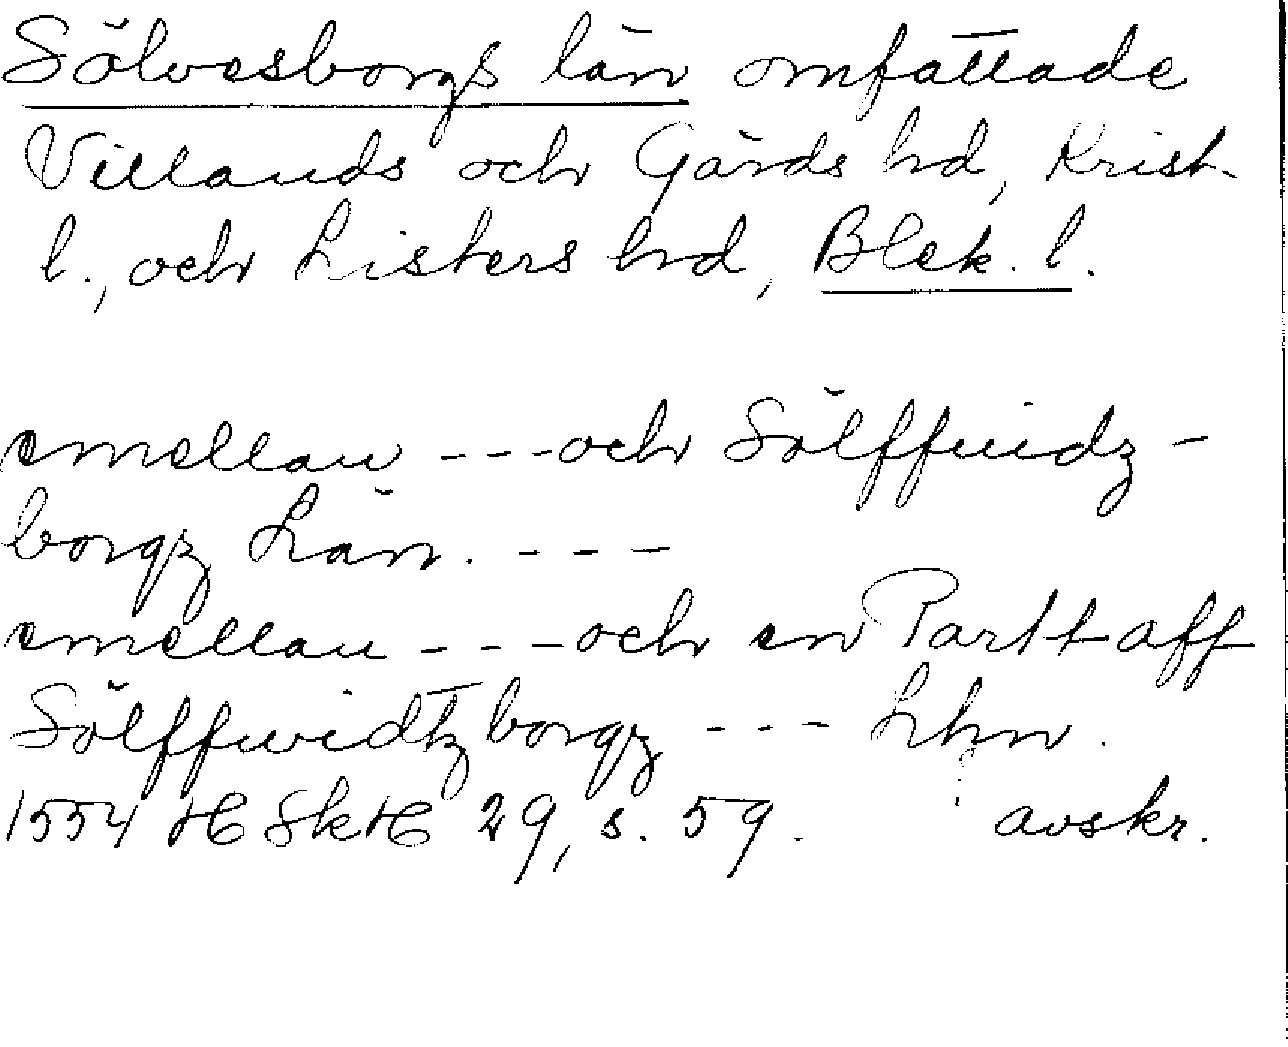 Sölvesborgs län omfattade
Villands och Gärds hd, Krist.
l., och Listers hd, Blek. l.
emellan --- och Sölffuidz-
borgz Län. ---
emellan --- och en Partt aff
Sölffwidtzborgz --- Lhn.
?
1554 HSkH 29, s. 59. avskr.